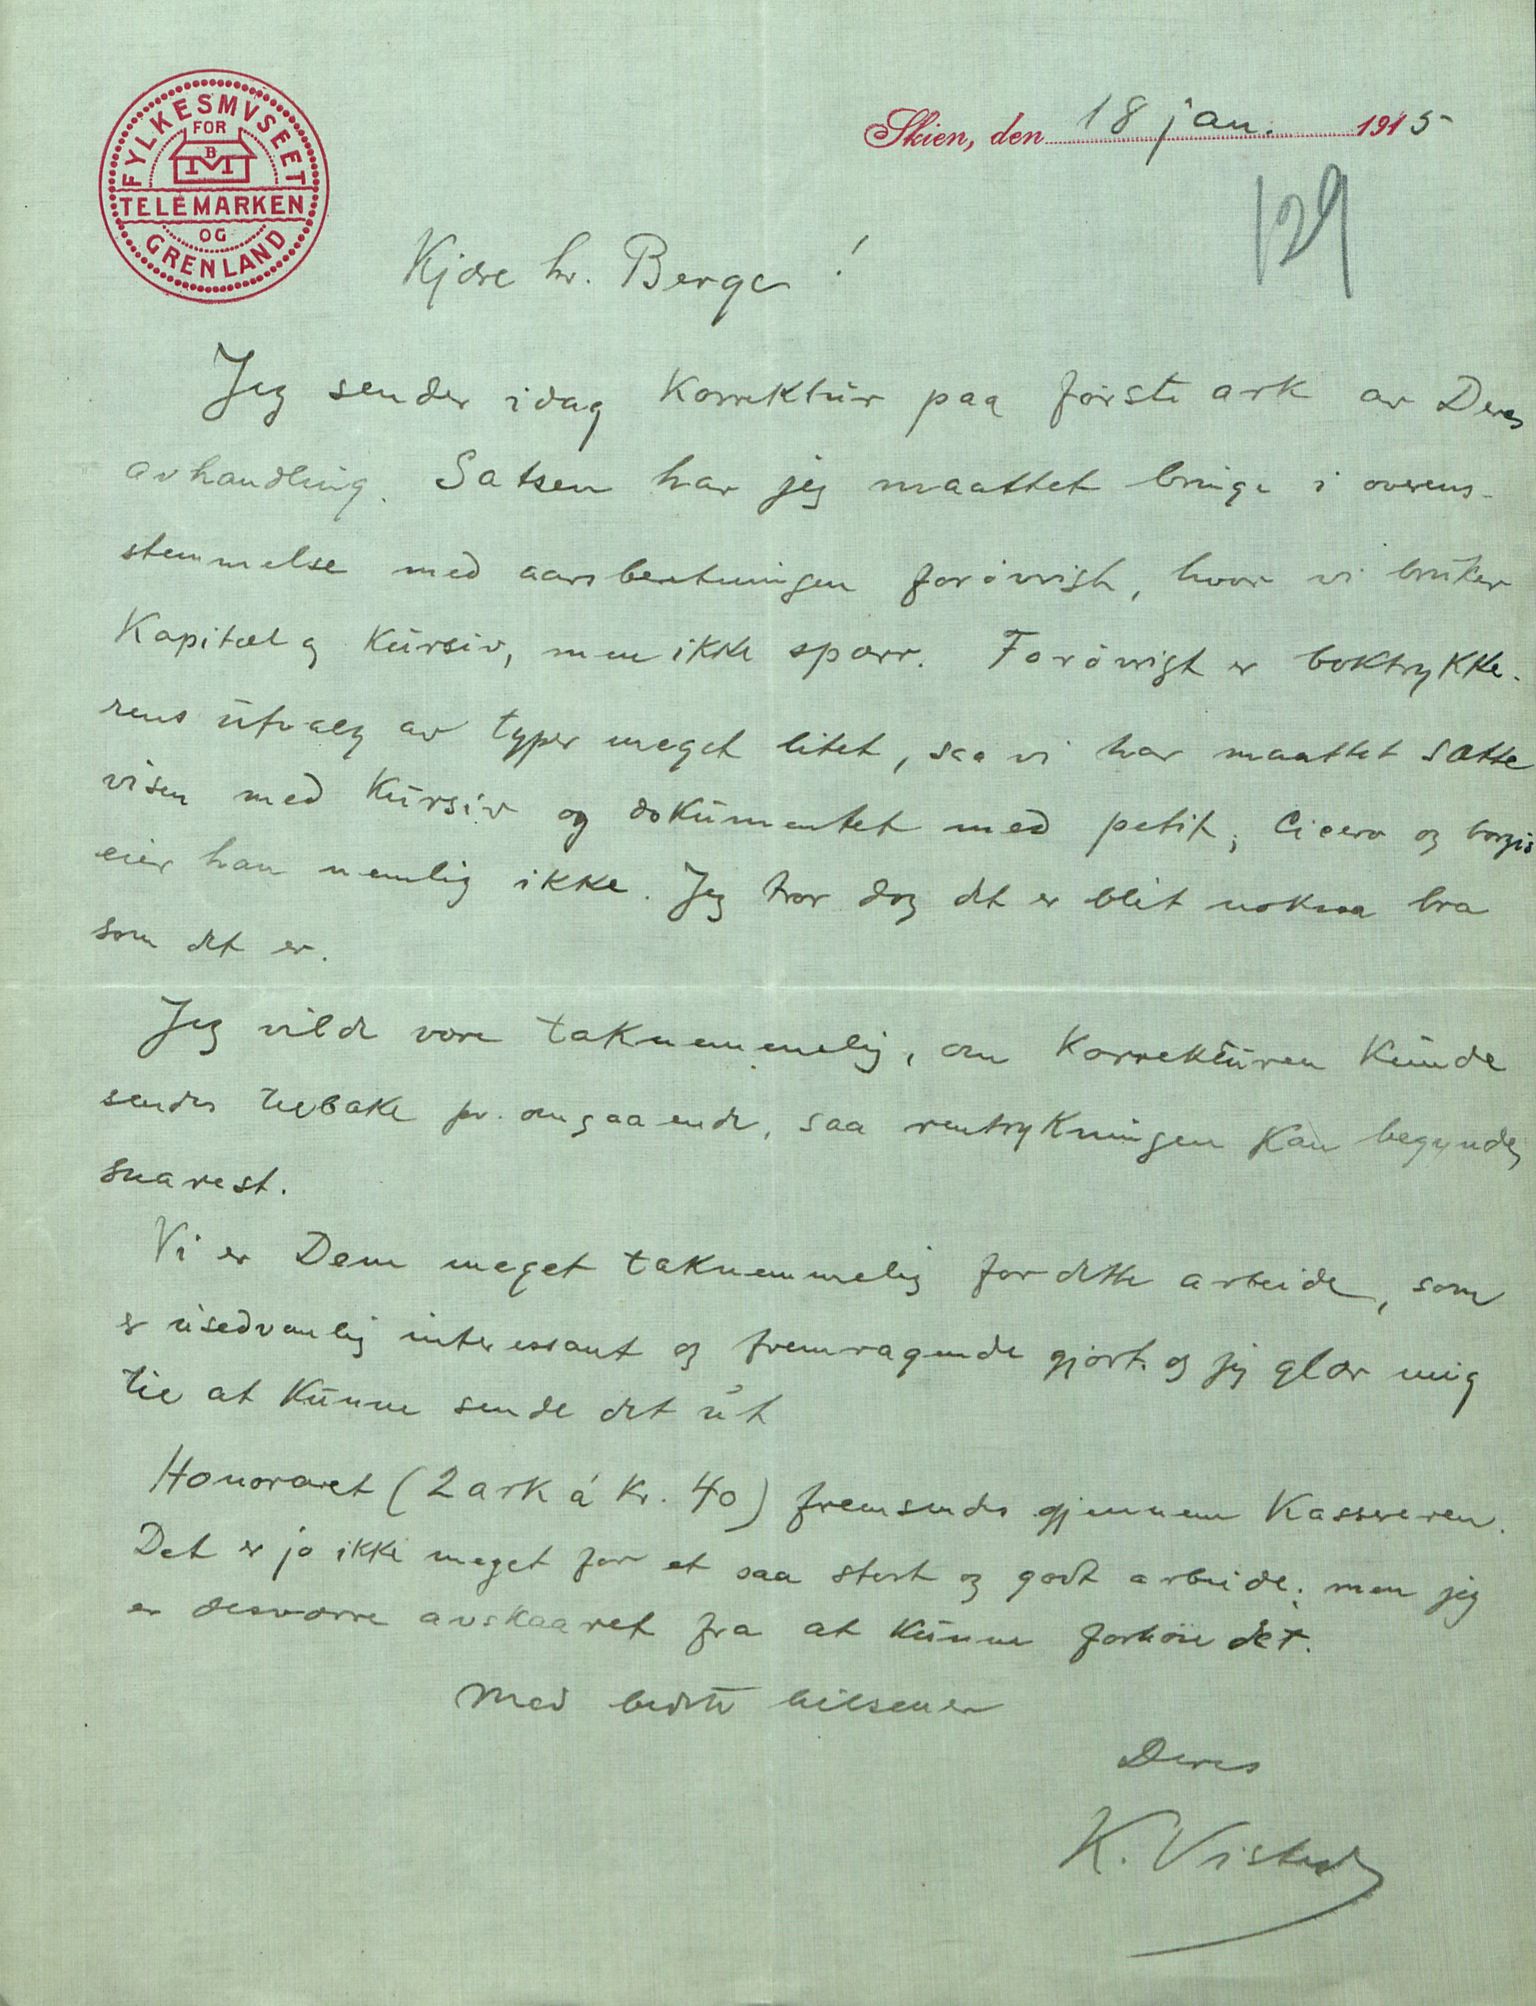 FYLKESMVSEET
FOR
BM
TELEMARKEN
OG
GRENLAND
Skien, den 18 jan. 1915
129
Kjære hr. Berge!
Jeg sender idag korrektur paa første ark av Deres
avhandling. Satsen har jeg maattet bringe i overens-
stemmelse med aarsberetningen forøvrigt, hvor vi bruker
Kapitæl og kursiv, men ikke spærr. Forøvrigt er boktrykke-
rens utvalg av typer meget litet, saa vi har maattet sætte
visen med kursiv og dokumentet med petit; Cicero og borgis
eier han nemlig ikke. Jeg tror dog det er blit noksaa bra
som det er.
Jeg vilde være taknemmelig, om korrekturen kunde
sendes tilbake pr. omgaaende, saa rentrykningen kan begyndes
snarest.
Vi er Dem meget taknemmelig for dette arbeide, som
er usedvanlig interessant og fremragende gjort og jeg glær mig
til at kunne sende det ut
Honoraret (2 ark á kr. 40) fremsendes gjennem kassereren.
Det er jo ikke meget for et saa stort og godt arbeide; men jeg
er desværre avskaaret fra at kunne forhöie det.
Med bedste hilsener
Deres
K. Visted